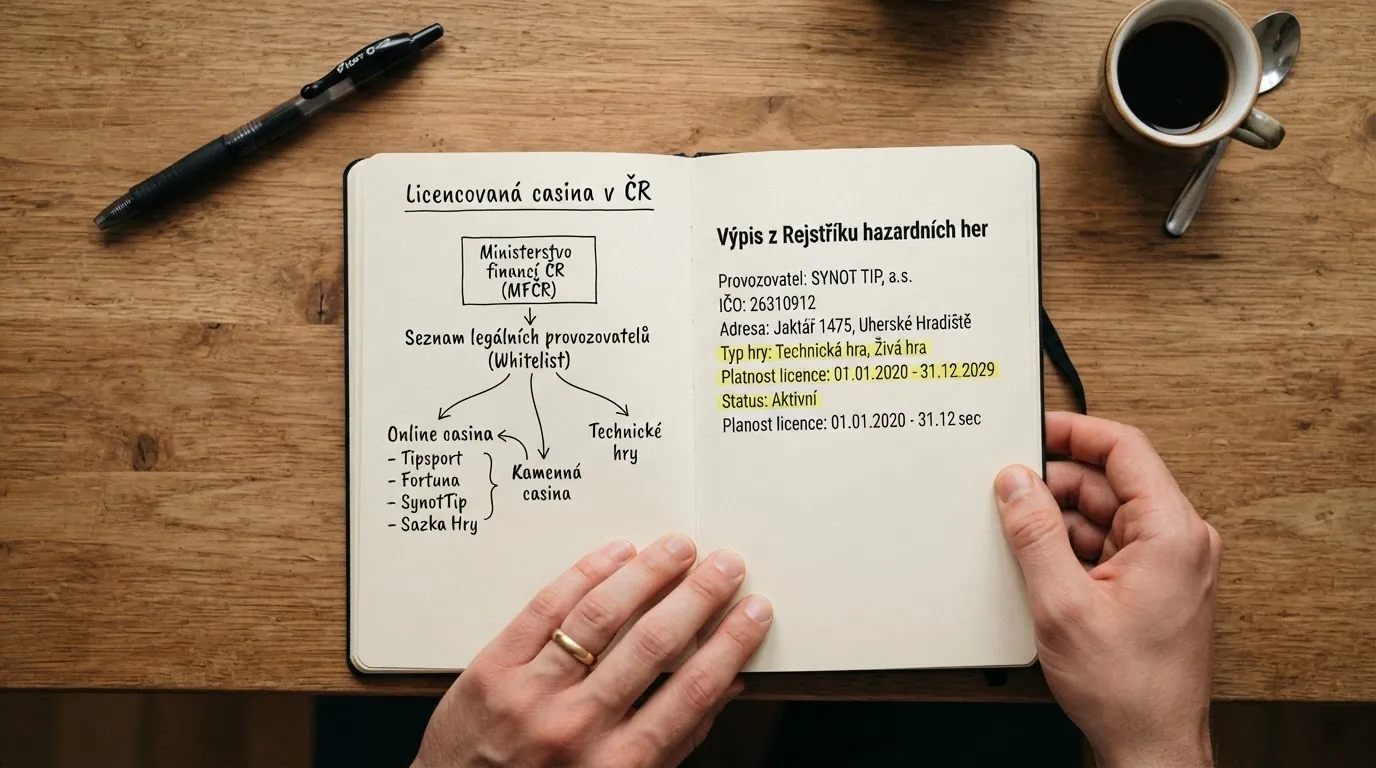 Licencovaná casina v ČR
Ministerstvo
financí ČR
(MFČR)
Seznam legálních provozovatelů
(Whitelist)
Online casina
- Tipsport
- Fortuna
- SynotTip
- Sazka Hry
Kamenná
casina
Technické
hry
Výpis z Rejstříku hazardních her
Provozovatel: SYNOT TIP, a.s.
IČO: 26310912
Adresa: Jaktář 1475, Uherské Hradiště
Typ hry: Technická hra, Živá hra
Platnost licence: 01.01.2020 - 31.12.2029
Status: Aktivní
Planost licence: 01.01.2020 - 31.12 sec